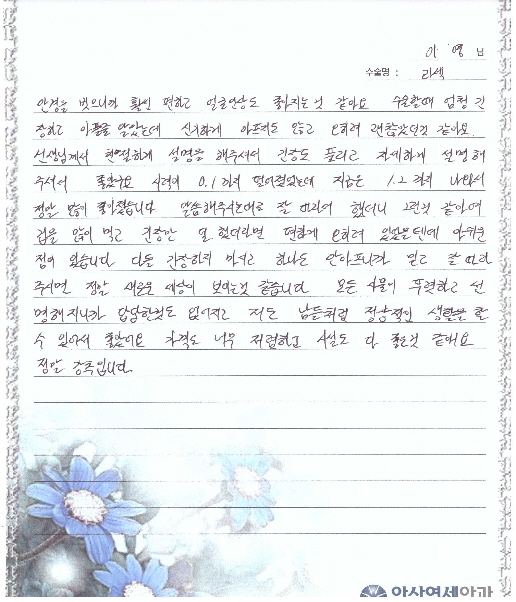 이 영 님
수술명 : 라섹
안경을 벗으니까 훨씬 편하고 얼굴인상도 좋아지는것 같아요 수술할때 엄청 긴
장하고 아플줄 알았는데 신기하게 아프지도 않고 오히려 괜찮았던것 같아요
선생님께서 친절하게 설명을 해주셔서 긴장도 풀리고 자세하게 설명해
주셔서 좋았구요 시력이 0.1 까지 떨어졌었는데 지금은 1.2 까지 나와서
정말 많이 좋아졌습니다 말씀해주시는대로 잘 따라서 했더니 그런것 같아여
겁을 많이 먹고 긴장만 덜 했더라면 편하게 오히려 있었을텐데 아쉬운
점이 있습니다 다들 긴장하지 마시고 하나도 안아프니까 믿고 잘 따라
주시면 정말 새로운 세상이 보이는것 같습니다 모든 사물이 뚜렷하고 선
명해지니까 답답한것도 없어지고 저도 남들처럼 정상적인 생활을 할
수 있어서 좋았어요 가격도 너무 저렴하고 시설도 다 좋은것 같애요
정말 강추입니다.
안산연세안과